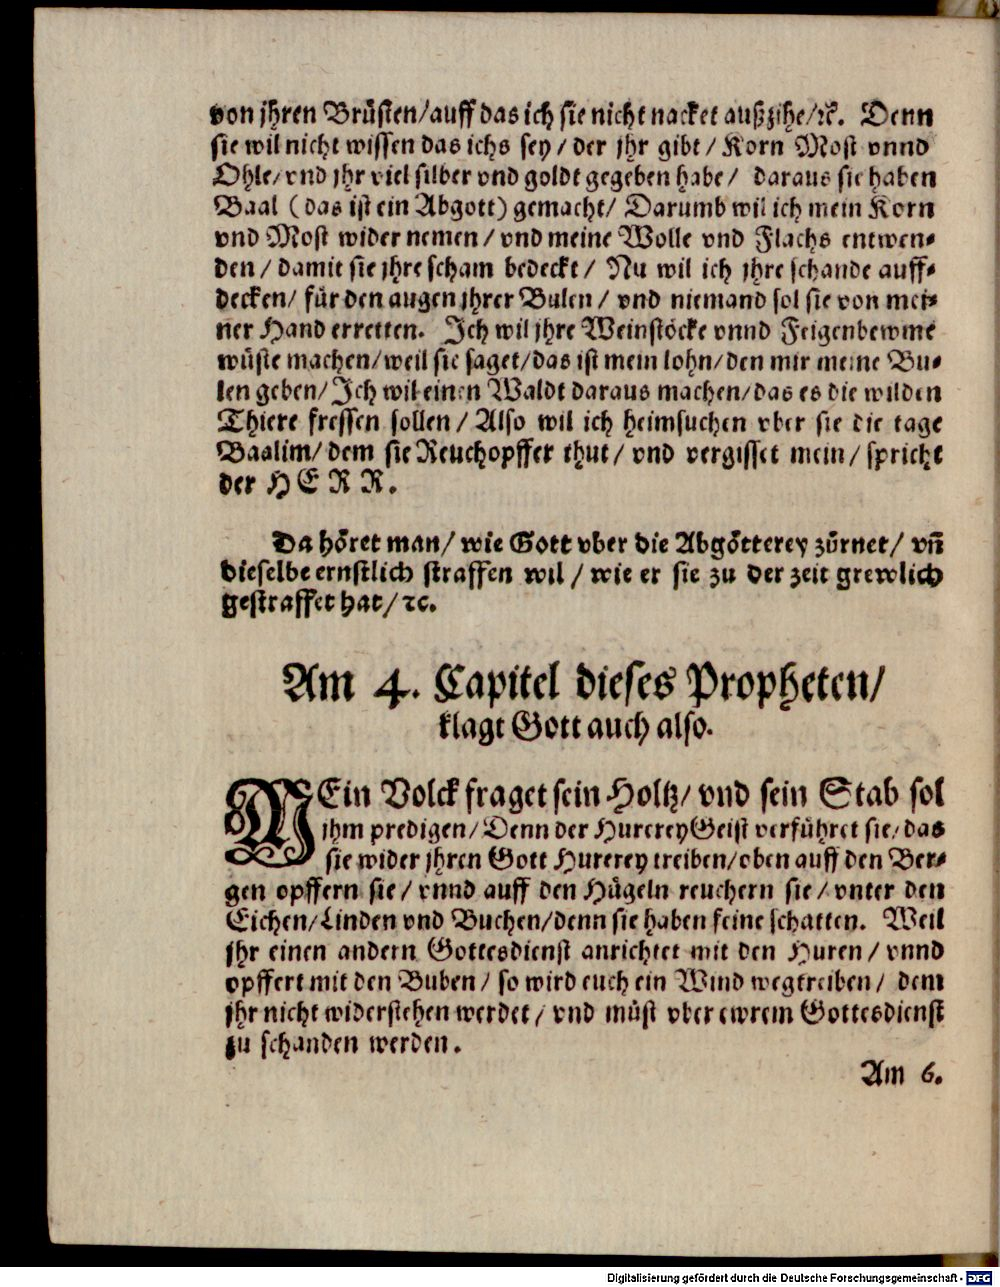 von jhren Brüsten/auff das ich sie nicht nacket außzihe/ꝛc. Denn
sie wil nicht wissen das ichs sey/ der jhr gibt/ Korn Most vnnd
Ohle/vnd jhr viel silber vnd goldt gegeben habe/ daraus sie haben
Baal (das ist ein Abgott) gemacht/ Darumb wil ich mein Korn
vnd Most wider nemen/ vnd meine Wolle vnd Flachs entwen-
den/ damit sie jhre scham bedeckt/ Nu wil ich jhre schande auff-
decken/ für den augen jhrer Bulen/ vnd niemand sol sie von mei-
ner Hand erretten. Ich wil jhre Weinstöcke vnnd Feigenbewme
wüste machen/weil sie saget/das ist mein lohn/den mir meine Bu-
len geben/Ich wil einen Waldt daraus machen/das es die wilden
Thiere fressen sollen/ Also wil ich heimsuchen vber sie die tage
Baalim/ dem sie Reuchopffer thut/ vnd vergisset mein/ spricht
der HERR.
Da höret man/ wie Gott vber die Abgötterey zürnet/ vñ
dieselbe ernstlich straffen wil/ wie er sie zu der zeit grewlich
gestraffet hat/ ꝛc.
Am 4. Capitel dieses Propheten/
klagt Gott auch also.
MEin Volck fraget sein Holtz/ vnd sein Stab sol
jhm predigen/Denn der Hurerey Geist verführet sie/das
sie wider jhren Gott Hurerey treiben/oben auff den Ber-
gen opffern sie/ vnnd auff den Hügeln reuchern sie/ vnter den
Eichen/Linden vnd Buchen/denn sie haben feine schatten. Weil
jhr einen andern Gottesdienst anrichtet mit den Huren/ vnnd
opffert mit den Buben/ so wird euch ein Wind wegtreiben/ dem
jhr nicht widerstehen werdet/ vnd müst vber ewrem Gottesdienst
zu schanden werden.
Am 6.
Digitalisierung gefördert durch die Deutsche Forschungsgemeinschaft - DFG